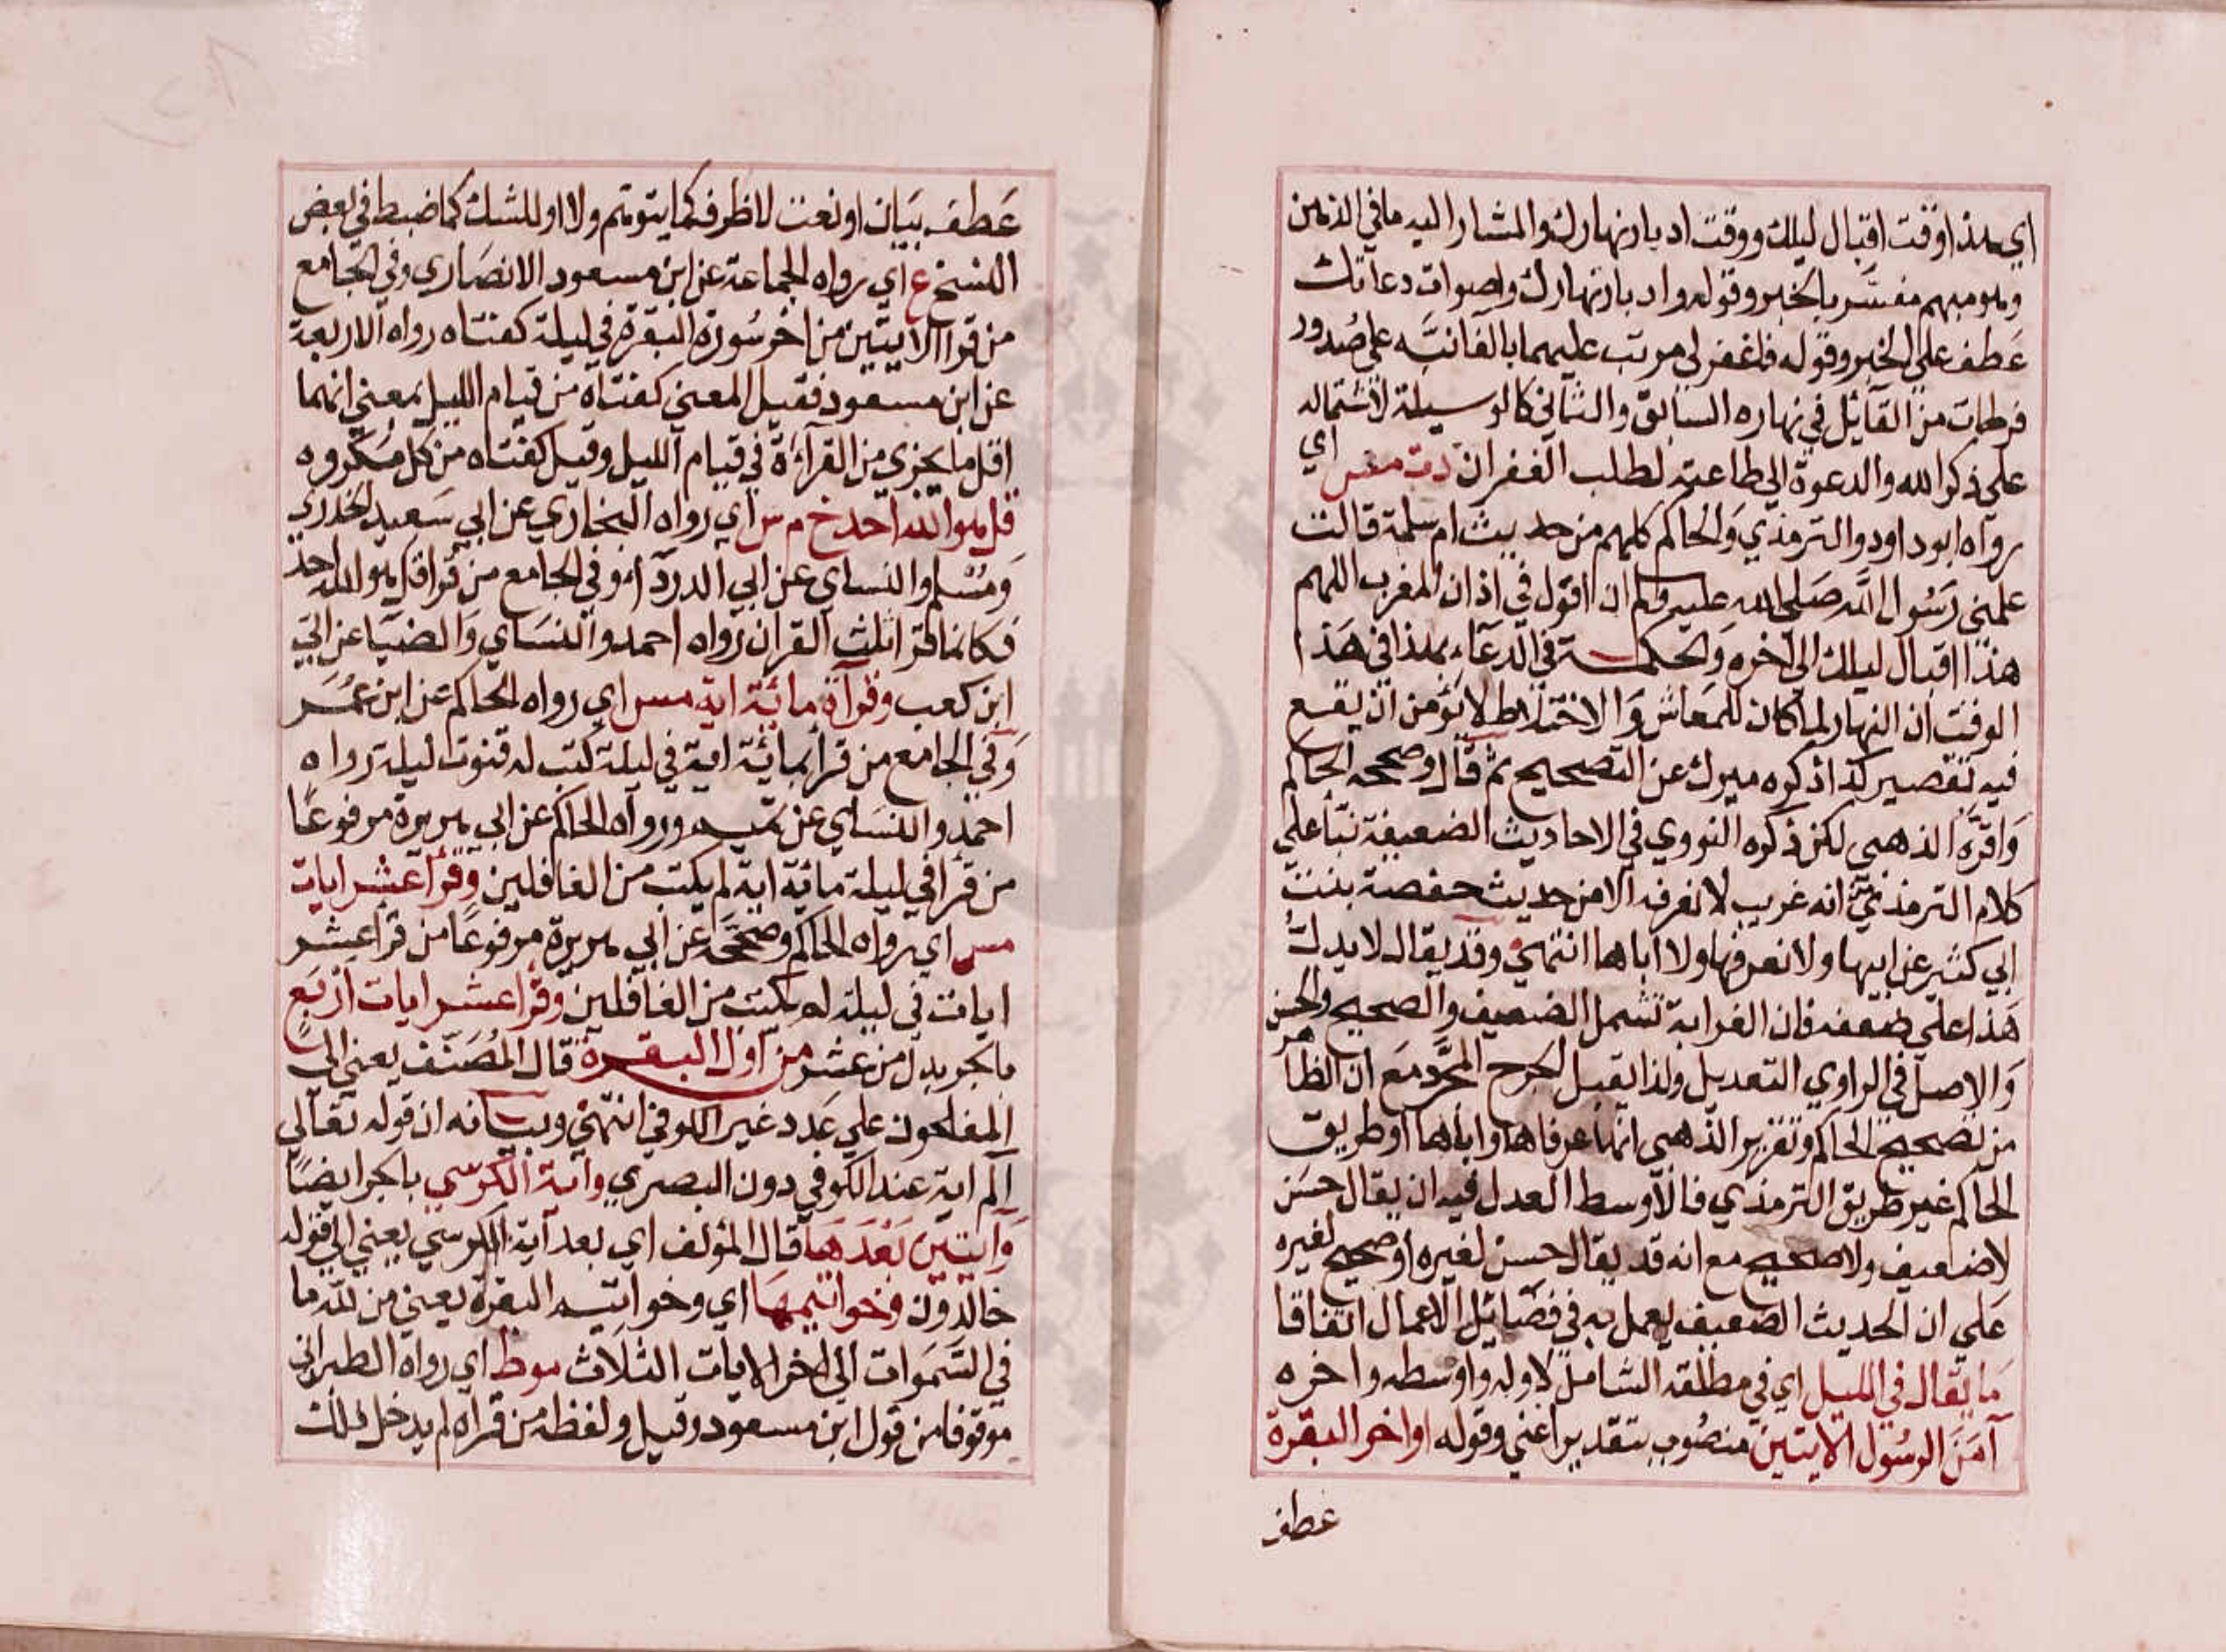 اي هذا وقت اقبال ليلك ووقت ادبار نهارك والمشار اليه ما في الذهن
وهو مبهم مفسر بالخبر وقوله وادبار نهارك واصوات دعاتك
عطف علي الخبر وقوله فاغفر لي مرتب عليهما بالفا نبه علي صدور
فرطات من القائل في نهاره السابق والثاني كالوسيلة لاشتماله
علي ذكر الله والدعوة الي طاعته لطلب الغفران دت مس اي
رواه ابو داود والترمذي والحاكم كلهم من حديث ام سلمة قالت
علمني رسول الله صلي الله عليه وسلم ان اقول في اذان المغرب اللهم
هذا اقبال ليلك الي اخره والحكمة في الدعاء بهذا في هذا
الوقت ان النهار لما كان للمعاش والاختلاط لا يؤمن ان يقع
فيه تقصير كذا ذكره ميرك عن التصحيح ثم قال وصححه الحاكم
واقره الذهبي لكن ذكره النووي في الاحاديث الضعيفة بنا علي
كلام الترمذي انه غريب لا نعرفه الا من حديث حفصة بنت
ابي كثير عن ابيها ولا نعرفها ولا اباها انتهي وقد يقال لا يدل
هذا علي ضعفه فان الغرابة تشمل الضعيف والصحيح والحسن
والاصل في الراوي التعديل ولذا يقبل الجرح المجرد مع ان الظاهر
من تصحيح الحاكم وتقرير الذهبي انهما عرفاها واباها او طريق
الحاكم غير طريق الترمذي فالاوسط العدل فيه ان يقال حسن
لا ضعيف ولا صحيح مع انه قد يقال حسن لغيره او صحيح لغيره
علي ان الحديث الضعيف يعمل به في فضائل الاعمال اتفاقا
ما يقال في الليل اي في مطلقه الشامل لاوله واوسطه واخره
آمن الرسول الايتين منصوب بتقدير اعني وقوله اواخر البقرة
عطف
عطف بيان او نعت لا ظرف كما يتوهم ولا او للشك كما ضبط في بعض
النسخ ع اي رواه الجماعة عن ابن مسعود الانصاري وفي الجامع
من قرا الايتين من اخر سورة البقرة في ليلة كفتاه رواه الاربعة
عن ابن مسعود فقيل المعني كفتاه من قيام الليل بمعني انهما
اقل ما يجزي من القراءة في قيام الليل وقيل كفتاه من كل مكروه
قل هو الله احد خ م س اي رواه البخاري عن ابي سعيد الخدري
ومسلم والنساي عن ابي الدرداء وفي الجامع من قرا قل هو الله احد
فكانما قرا ثلث القران رواه احمد والنساي والضيا عن ابي
ابن كعب وقراة مائة اية مس اي رواه الحاكم عن ابن عمر
وفي الجامع من قرا بمائة اية في ليلة كتب له قنوت ليلة رواه
احمد والنساي عن تميم ورواه الحاكم عن ابي هريرة مرفوعا
من قرا في ليلة مائة اية لم يكتب من الغافلين وقرا عشر ايات
مس اي رواه الحاكم وصححه عن ابي هريرة مرفوعا من قرا عشر
ايات في ليلة لم يكتب من الغافلين وقرا عشر ايات اربع
بالجر بدل من عشر من اول البقرة قال المصنف يعني الي
المفلحون علي عدد غير الكوفي انتهي وبيانه ان قوله تعالي
الم اية عند الكوفي دون البصري واية الكرسي بالجر ايضا
وآيتين بعدها قال المؤلف اي بعد آية الكرسي يعني الي قوله
خالدون وخواتيمها اي وخواتيم البقرة يعني من لله ما
في السموات الي اخر الايات الثلاث موط اي رواه الطبراني
موقوفا من قول ابن مسعود وقيل ولفظه من قراه لم يدخل ذلك